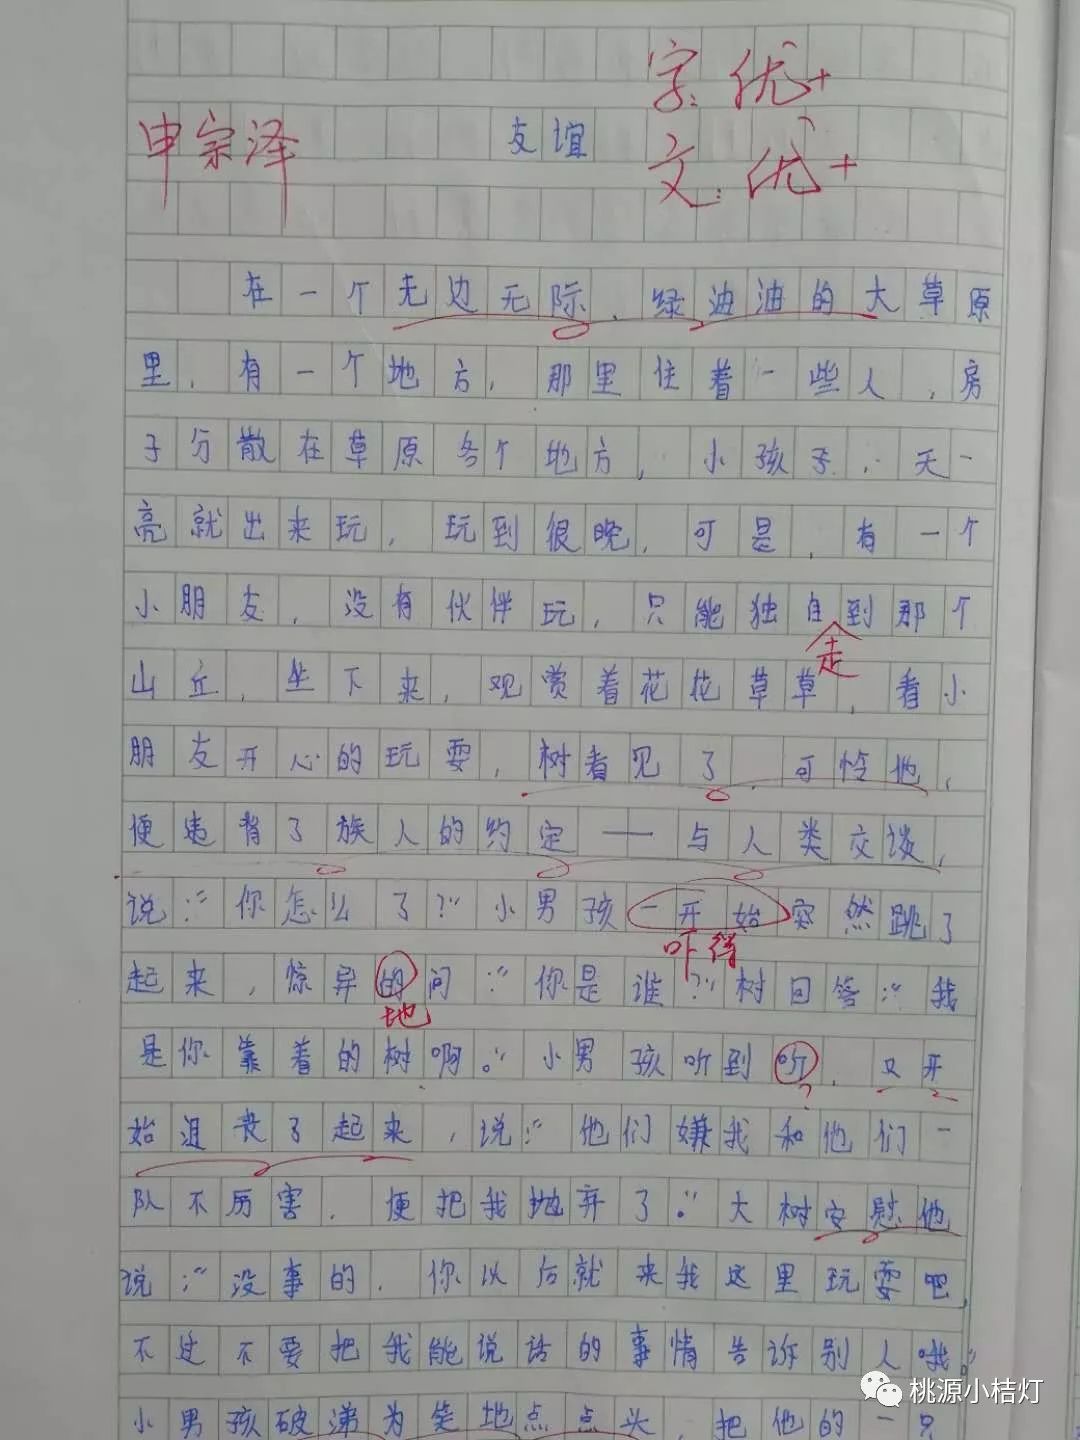 字:优+
申宗泽 友谊
文:优+
在一个无边无际、绿油油的大草原
里,有一个地方,那里住着一些人,房
子分散在草原各个地方,小孩子,天一
亮就出来玩,玩到很晚,可是,有一个
小朋友,没有伙伴玩,只能独自到那个
走
山丘,坐下来,观赏着花花草草,看小
朋友开心的玩耍,树看见了,可怜他,
便违背了族人的约定——与人类交谈,
说:“你怎么了?”小男孩一开始突然跳了
吓得
起来,惊异的问:“你是谁?”树回答:“我
地
是你靠着的树啊。”小男孩听到听,又开
?
始沮丧了起来,说:“他们嫌我和他们一
队不厉害,便把我抛弃了。”大树安慰他
说:“没事的,你以后就来我这里玩耍吧,
不过不要把我能说话的事情告诉别人哦。”
小男孩破涕为笑地点点头,把他的一只
桃源小桔灯